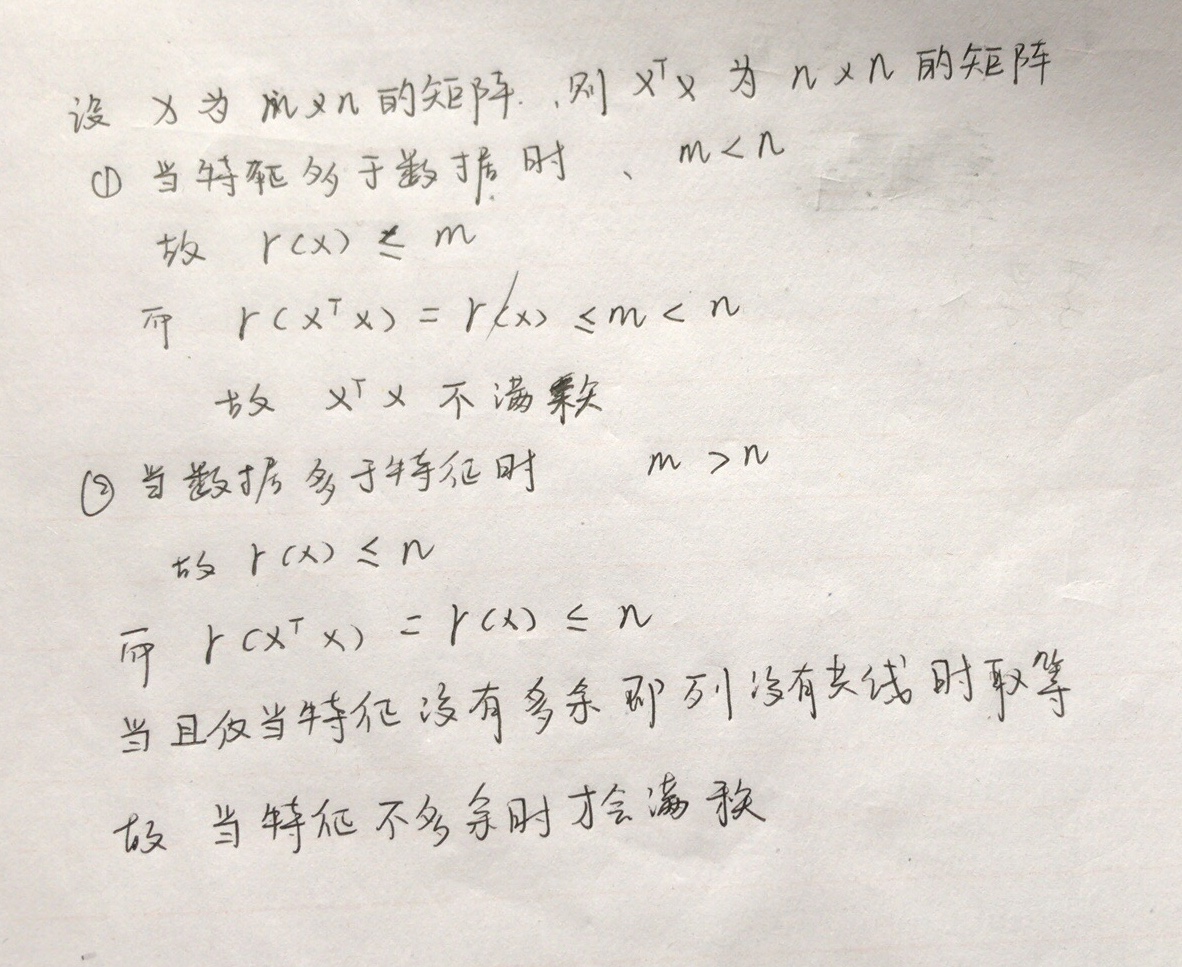 设 X为 m×n 的矩阵.,则 XᵀX 为 n×n 的矩阵
① 当特征多于数据时、 m<n
故 r(X) ≤ m
而 r(XᵀX) = r(X) ≤ m < n
故 XᵀX 不满秩
② 当数据多于特征时 m>n
故 r(X) ≤ n
而 r(XᵀX) = r(X) ≤ n
当且仅当特征没有多余即列没有共线时取等
故 当特征不多余时才会满秩